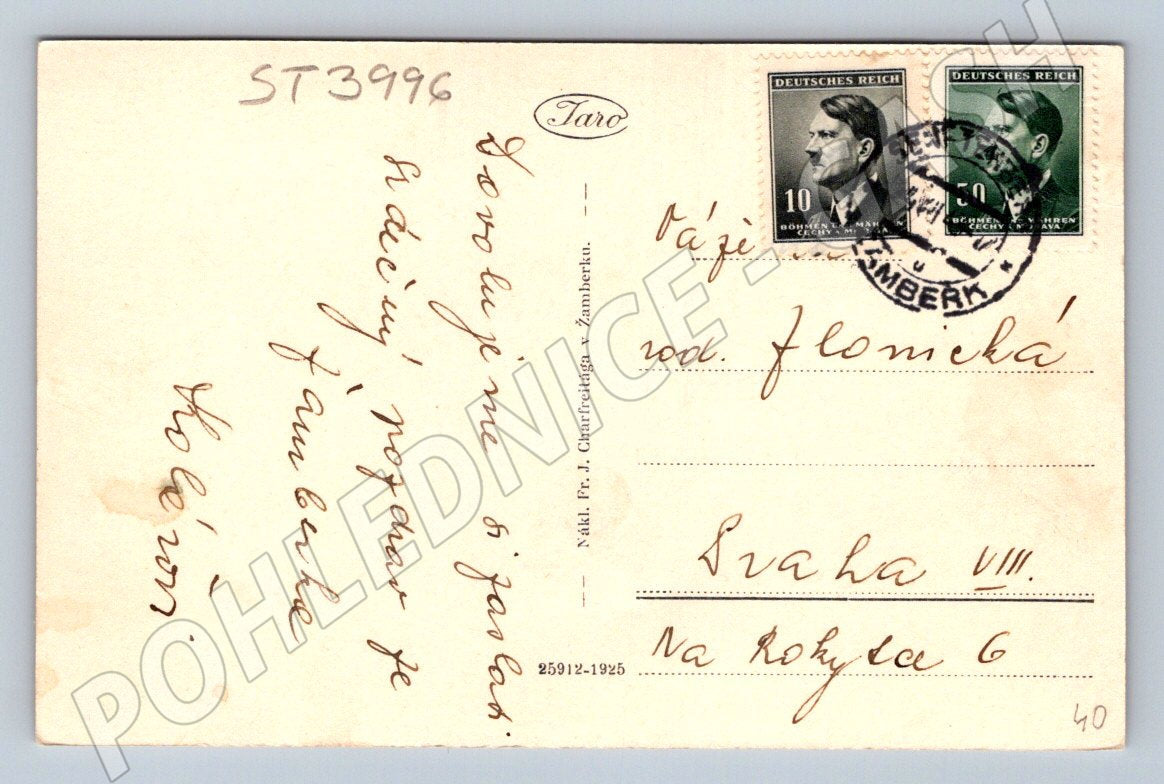 ST3996
Taro
Dovolujeme si zaslat
srdečný pozdrav ze
Žamberka
Kolárovi.
Nákl. Fr. J. Charfreitága v Žamberku.
25912-1925
DEUTSCHES REICH
10
BÖHMEN U. MÄHREN
ČECHY A MORAVA
DEUTSCHES REICH
50
BÖHMEN U. MÄHREN
ČECHY A MORAVA
SENFTENBERG
ŽAMBERK
Váž.
roz. Zlonická
Praha VIII.
Na Rokytce 6
40
POHLEDNICE - SBAZAR.CH